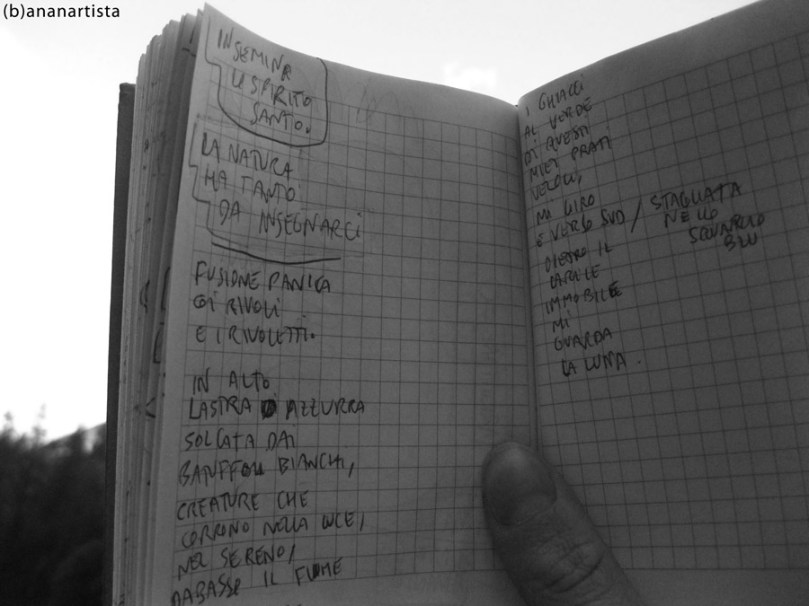 (b)ananartista
INSEMINA
LO SPIRITO
SANTO.
LA NATURA
HA TANTO
DA INSEGNARCI
FUSIONE PANICA
COI RIVOLI
E I RIVOLETTI.
IN ALTO
LASTRA AZZURRA
SOLCATA DAI
BATUFFOLI BIANCHI,
CREATURE CHE
CORRONO NELLA LUCE,
NEL SERENO,
DABASSO IL FIUME
I GHIACCI
AL VERDE
DI QUESTI
MIEI PRATI
VELOCI,
MI GIRO
E VERSO SUD / STAGLIATA
NELLO
SQUARCIO
BLU
DIETRO IL
LARICE
IMMOBILE
MI
GUARDA
LA LUNA.